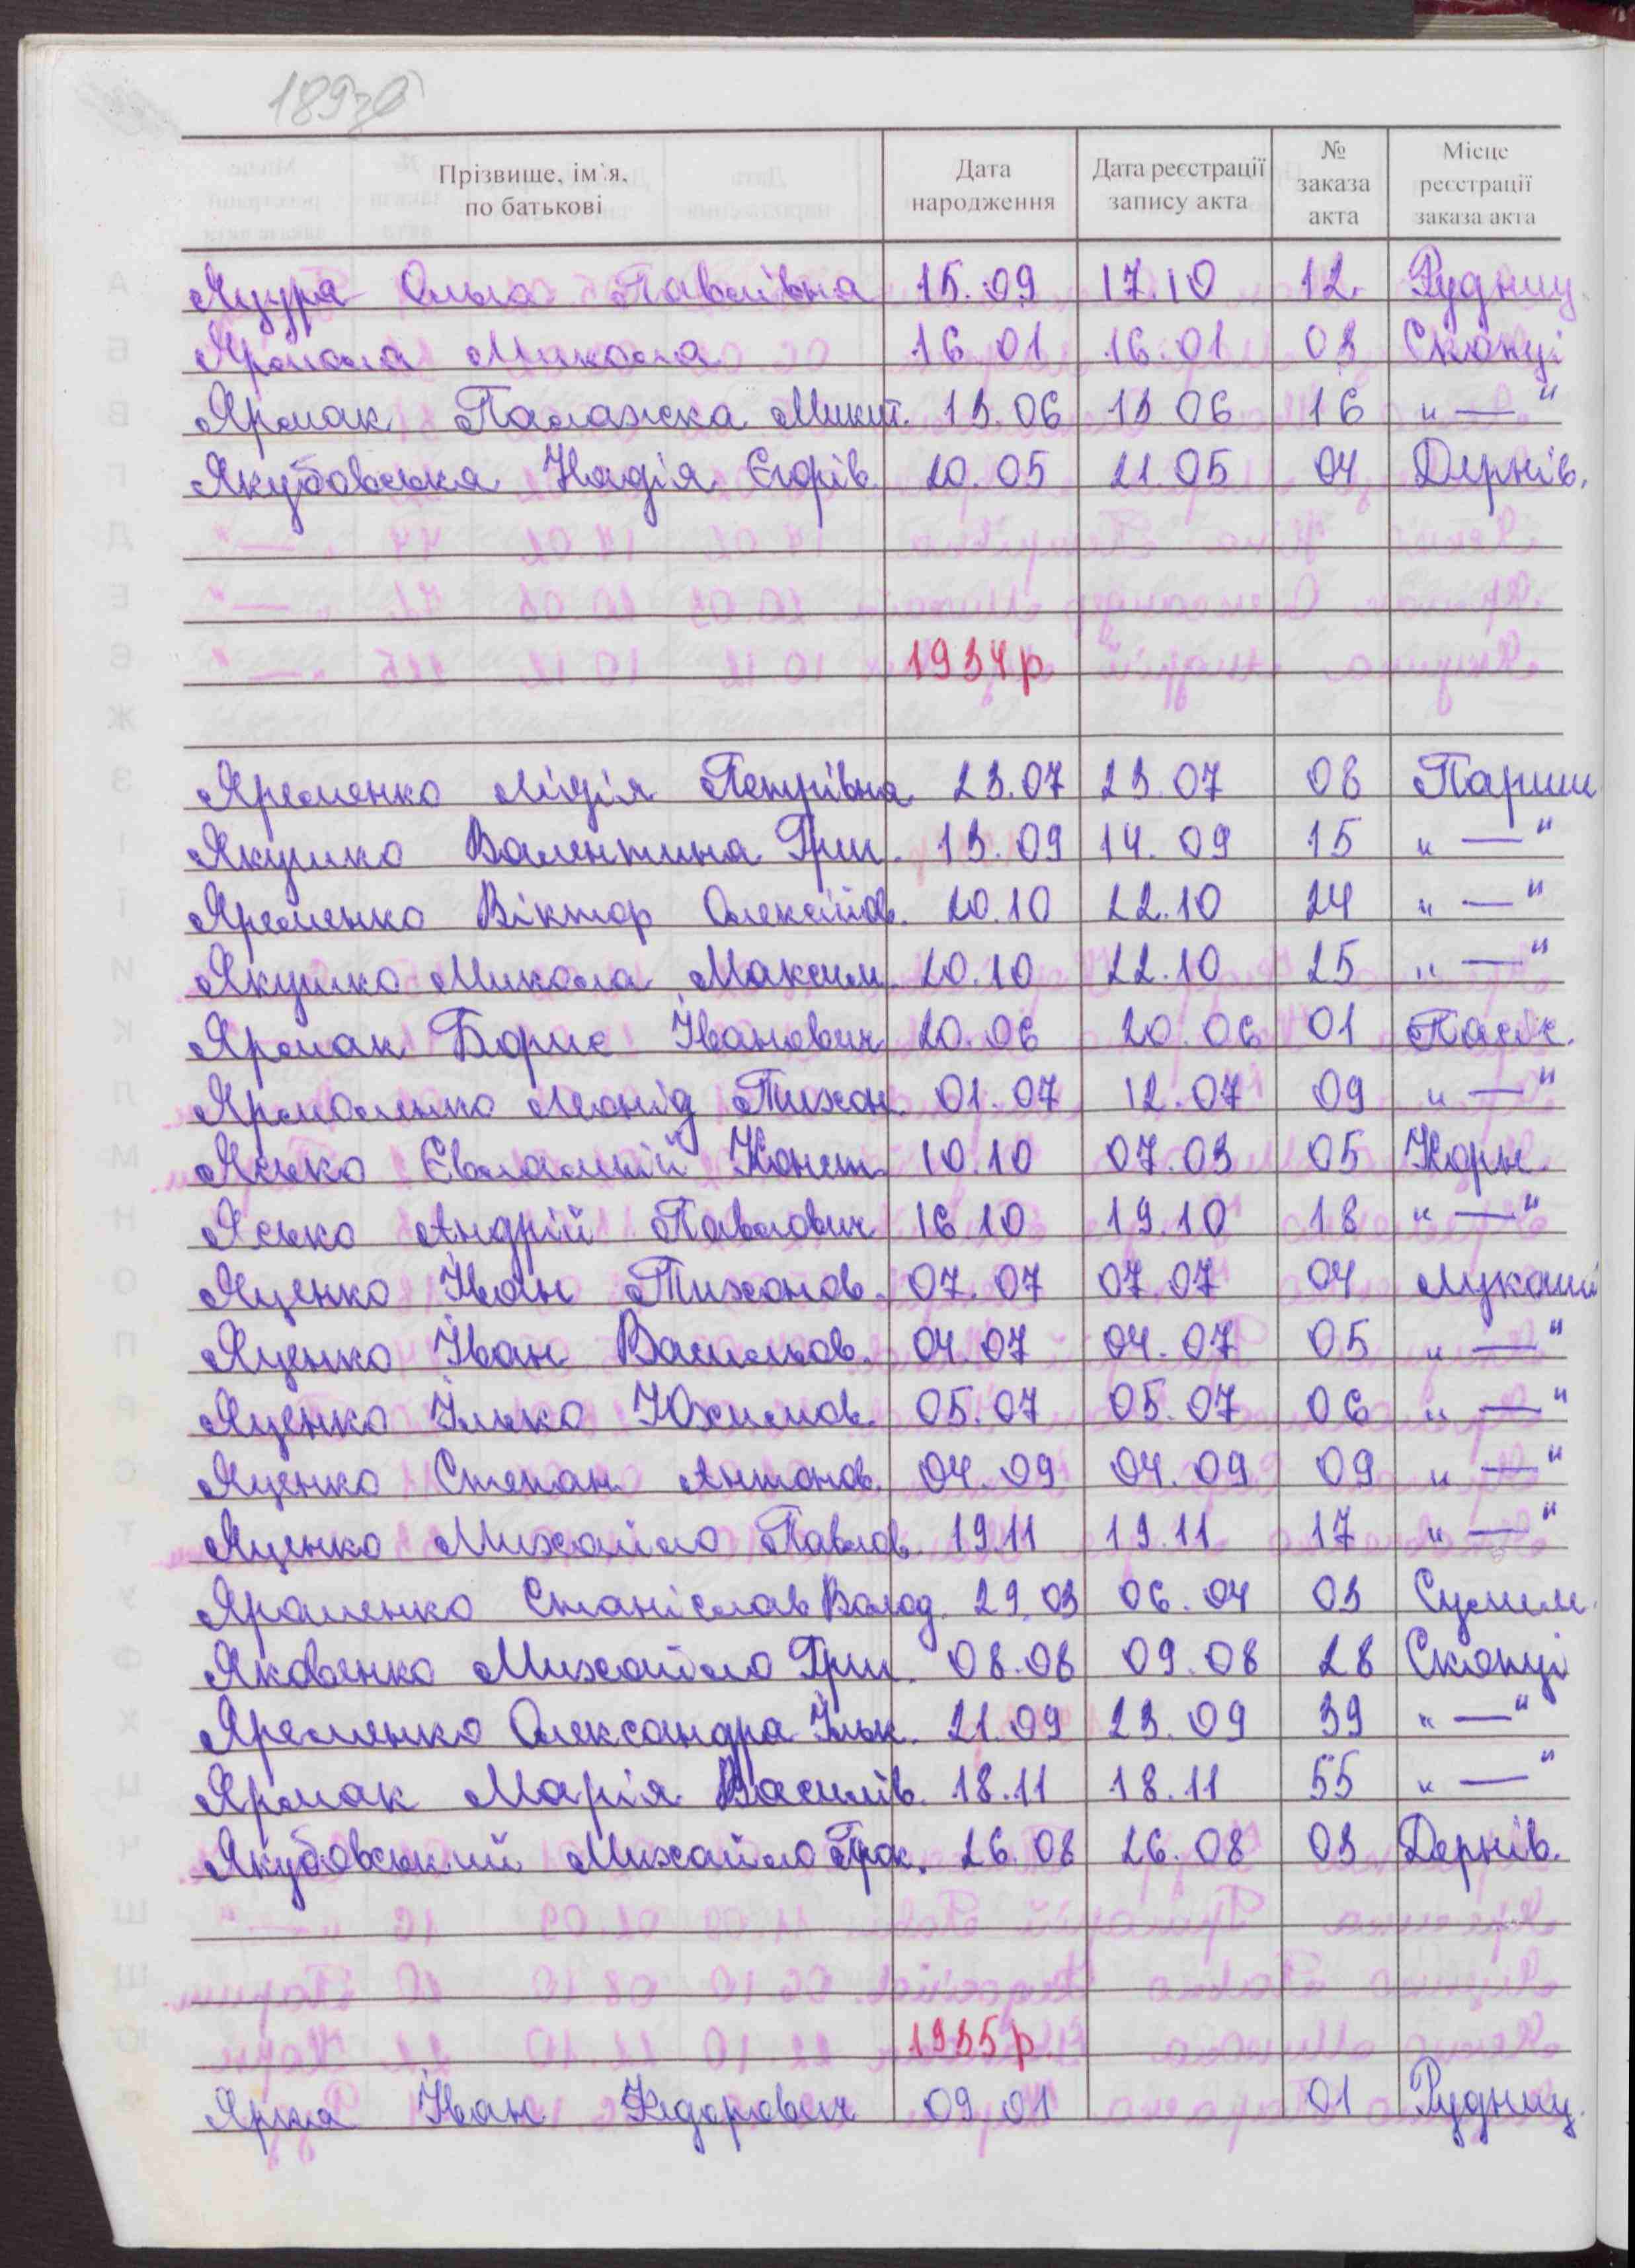 189зв
Прізвище, ім`я, по батькові Дата народження Дата реєстрації запису акта № заказа акта Місце реєстрації заказа акта
Яцура Ольга Павлівна 15.09 17.10 12. Рудниц.
Ярмола Микола 16 01 16.01 03 Скопці
Ярмак Палажка Микит. 13.06 13 06 16 " — "
Якубовська Надія Єгорів. 20.05 21.05 04 Дернів.
1934р
Яременко Лідія Петрівна 23.07 23.07 08 Париш
Якушко Валентина Гри. 13.09 14.09 15 " — "
Яременко Віктор Олексійов. 20.10 22.10 24 " — "
Якушко Микола Максим. 20.10 22.10 25 " — "
Ярмак Борис Іванович 20.06 20.06 01 Пасіч.
Ярмоленко Леонід Тихон. 01.07 12.07 09 " — "
Ясько Євлампій Конст. 10.10 07.03 05 Корж.
Ясько Андрій Павлович 16 10 19.10 18 " — "
Яценко Іван Тихонов. 07.07 07.07 04 Лукаші
Яценко Іван Васильов. 04.07 04.07 05 " — "
Яценко Ілько Юхимов. 05.07 05.07 06 " — "
Яценко Степан Антонов. 04.09 04.09 09 " — "
Яценко Михайло Павлов. 19.11 19.11 17 " — "
Ярошенко Станіслав Волод. 29.03 06.04 03 Сулим.
Яковенко Михайло Гри. 08.08 09.08 28 Скопці
Яременко Олександра Ільк. 21.09 23.09 39 " — "
Ярмак Марія Василів. 18.11 18.11 55 " — "
Якубовський Михайло 26.08 26.08 03 Дернів.
1935р.
Ярка Іван Федорович 09.01 01 Рудниц.